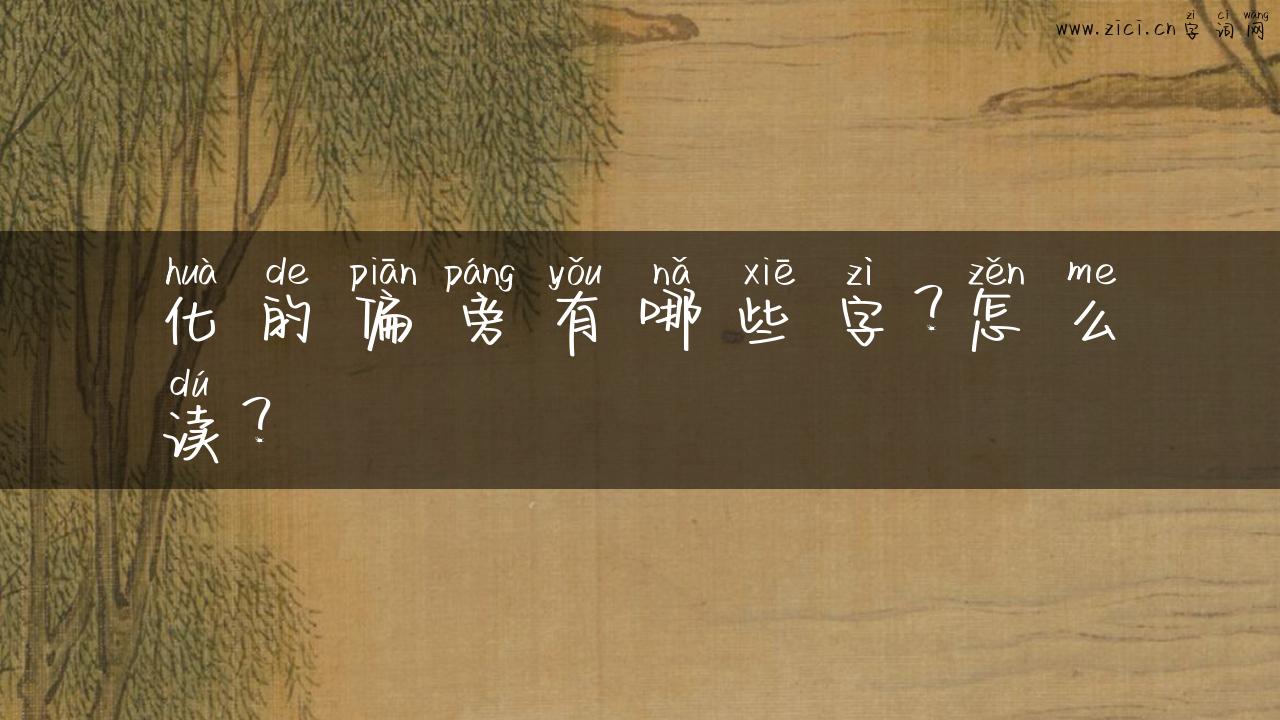 zì cí wǎng
www.zici.cn字词网
huà de piān páng yǒu nǎ xiē zì zěn me
化的偏旁有哪些字?怎么
dú
读?